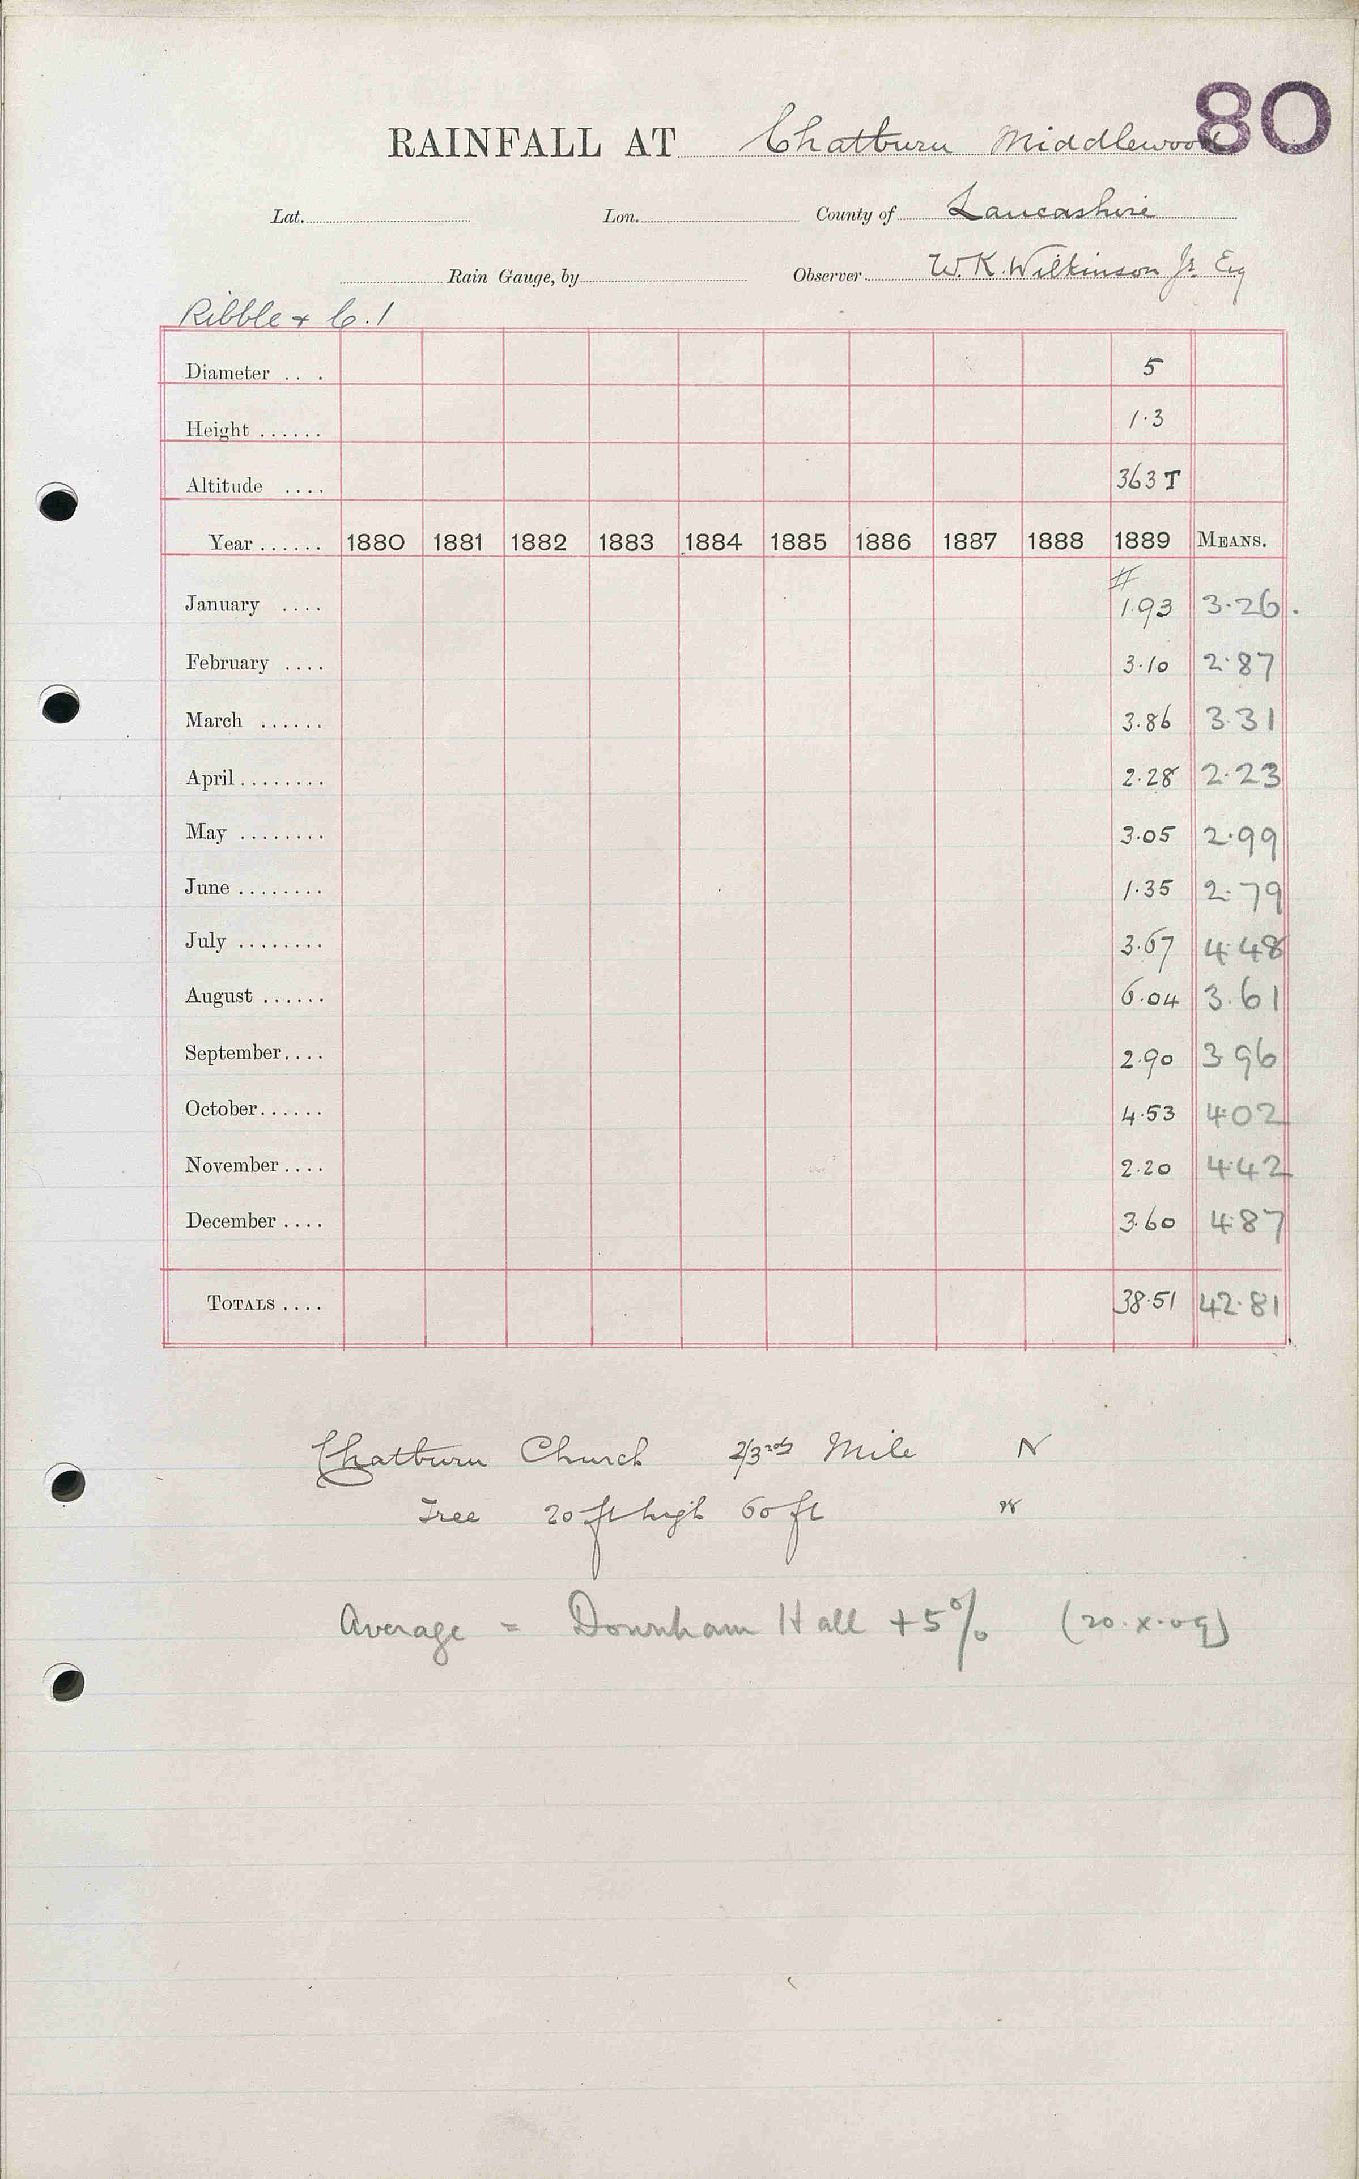 80
RAINFALL AT Chatburn Middlewood
Lat. Lon. County of Lancashire
Rain Gauge, by Observer W. K. Wilkinson Jr. Esq
Ribble & C. 1
Diameter ... 5
Height ...... 1.3
Altitude .... 363 T
Year ...... 1880 1881 1882 1883 1884 1885 1886 1887 1888 1889 MEANS.
#
January .... 1.93 3.26.
February .... 3.10 2.87
March ...... 3.86 3.31
April ........ 2.28 2.23
May ........ 3.05 2.99
June ........ 1.35 2.79
July ........ 3.67 4.48
August ...... 6.04 3.61
September .... 2.90 3 96
October ...... 4.53 4.02
November .... 2.20 4.42
December .... 3.60 4.87
TOTALS .... 38.51 42.81
Chatburn Church 2/3rds Mile N
Tree 20 ft high 60 ft
Average = Downham Hall + 5% (20.X.09)